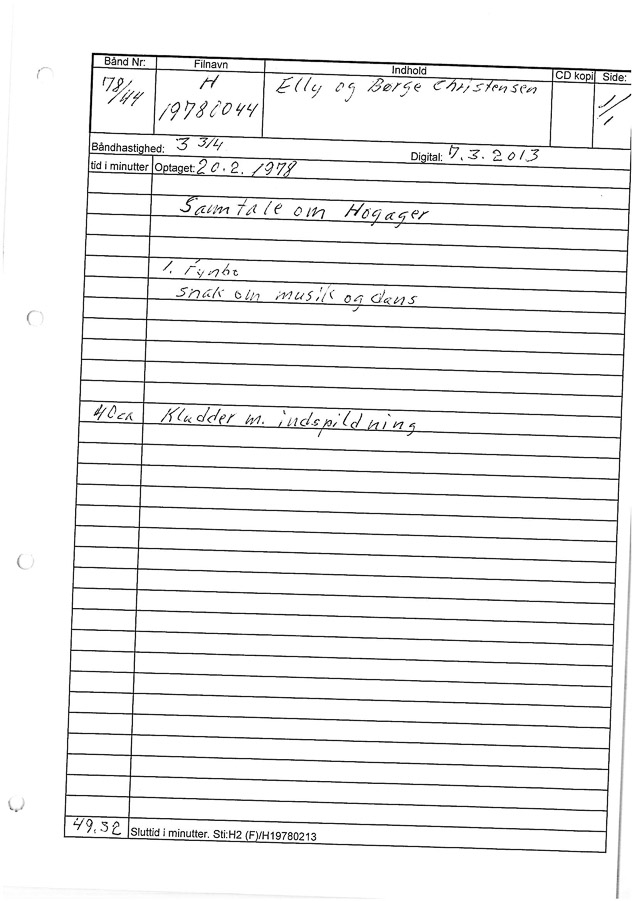 Bånd Nr: Filnavn Indhold CD kopi Side:
78/44 H Elly og Børge Christensen 1/1
19780044
Båndhastighed: 3 3/4 Digital: 7.3.2013
tid i minutter Optaget: 20.2.1978
Samtale om Hogager
1. Fynbo
snak om musik og dans
40 ca Kludder m. indspildning
49.32 Sluttid i minutter. Sti:H2 (F)/H19780213